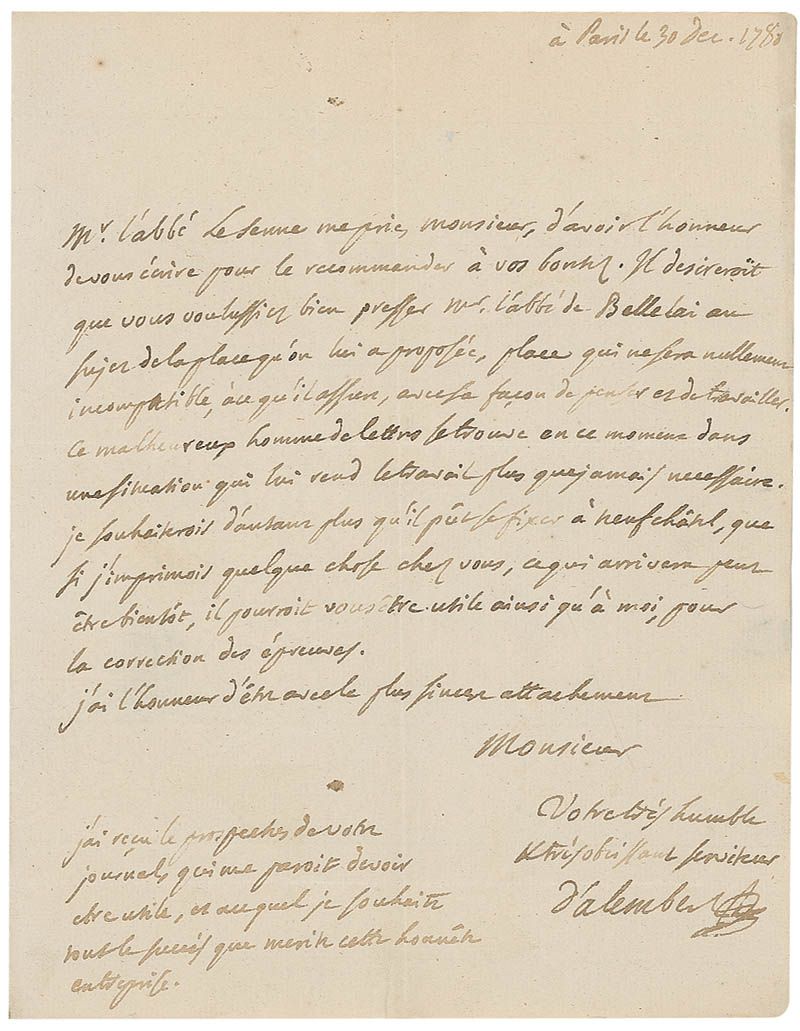 à Paris le 30 dec. 1780
Mr. l'abbé Le Senne me prie, monsieur, d'avoir l'honneur
de vous écrire pour le recommander à vos bontez. Il desireroit
que vous voulussiez bien presser Mr. l'abbé de Bellelai au
sujet de la place qu'on lui a proposée, place qui ne sera nullement
incompatible, à ce qu'il assure, avec sa façon de penser et de travailler.
Ce malheureux homme de lettres se trouve en ce moment dans
une situation qui lui rend le travail plus que jamais necessaire.
je souhaiterois d'autant plus qu'il pût se fixer à neufchâtel, que
si j'imprimois quelque chose chez vous, ce qui arrivera peut
être bientôt, il pourroit vous être utile ainsi qu'à moi, pour
la correction des épreuves.
j'ai l'honneur d'être avec le plus sincere attachement
Monsieur
Votre très humble
et très obeissant serviteur
D'alembert
j'ai reçu le prospectus de votre
journal, qui me paroit devoir
etre utile, et auquel je souhaite
tout le succés que merite cette honnête
entreprise.